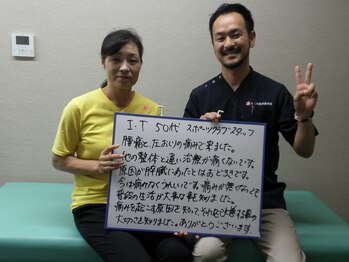 I.T 50代 スポーツクラブスタッフ
腰痛と、左おしりの痛みで来ました。
他の整体と違い治療が痛くないです。
原因が膵臓にあったとはおどろきです。
今は痛みなくうれしいです。痛みが無くなっても
普段の生活が大事な事を知りました。
痛みを起こす原因を知って、それを改善する事の
大切さを知りました。ありがとうございます